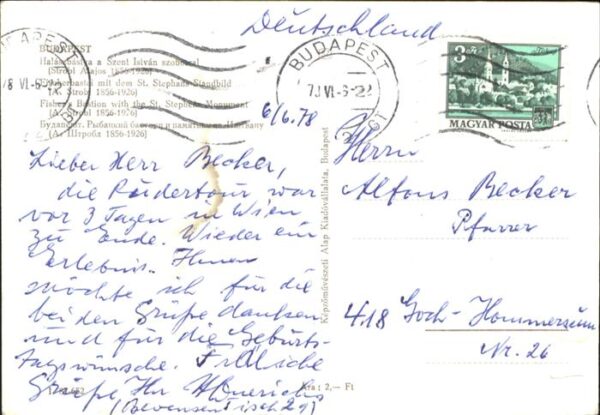 Deutschland
BUDAPEST
Halászbástya a Szent István szoborral
(Strobl Alajos 1856-1926)
Fischerbastei mit dem St. Stephans Standbild
(A. Strobl 1856-1926)
Fisher's Bastion with the St. Stephen Monument
(A. Strobl 1856-1926)
Будапешт. Рыбацкий бастион и памятник св. Иштвану
(А. Штробл 1856-1926)
BUDAPEST
78 VI-6-22
3 Ft
MAGYAR POSTA
6/6.78
Lieber Herr Becker,
die Rudertour war
vor 3 Tagen in Wien
zu Ende. Wieder ein
Erlebnis. Ihnen
möchte ich für die
beiden Grüße danken
und für die Geburts-
tagswünsche. Frdl.
Grüße Ihr
(Bevensen Tisch 29)
Képzőművészeti Alap Kiadóvállalata, Budapest
Ára: 2,— Ft
Herrn
Alfons Becker
Pfarrer
418 Goch-Hommersum
Nr. 26